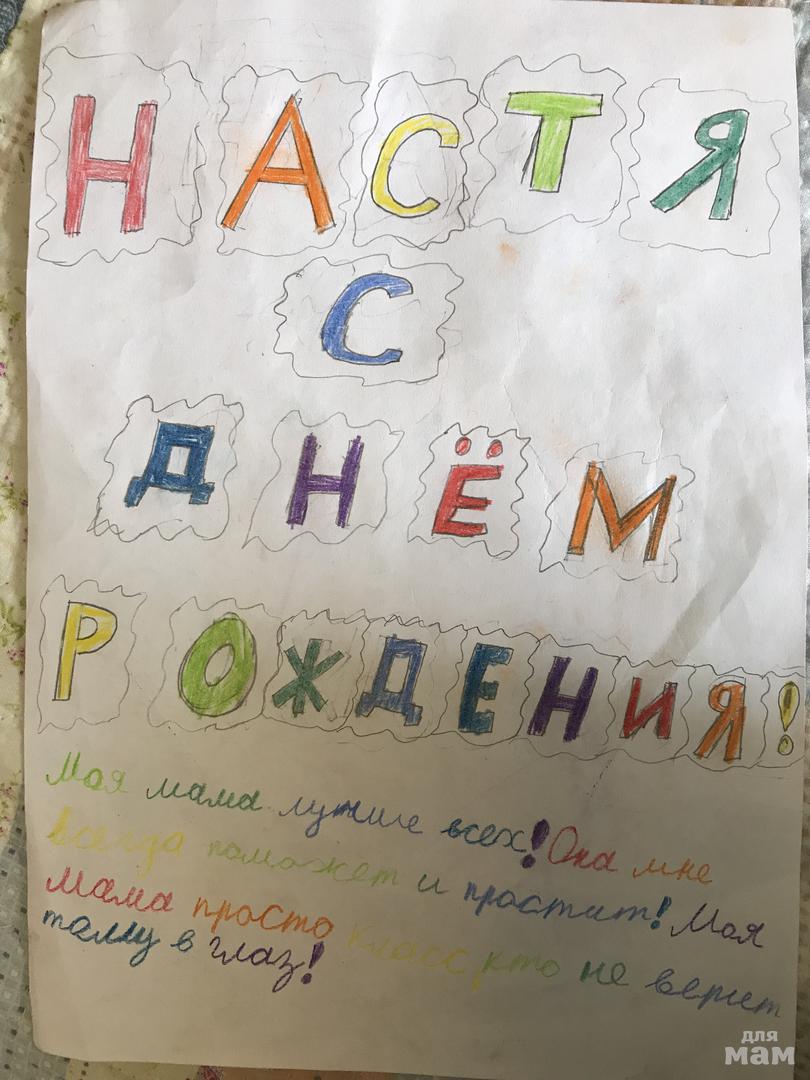 НАСТЯ
С
ДНЁМ
РОЖДЕНИЯ!
Моя мама лучше всех! Она мне
всегда поможет и простит! Моя
мама просто класс, кто не верит
тому в глаз!
для
мам